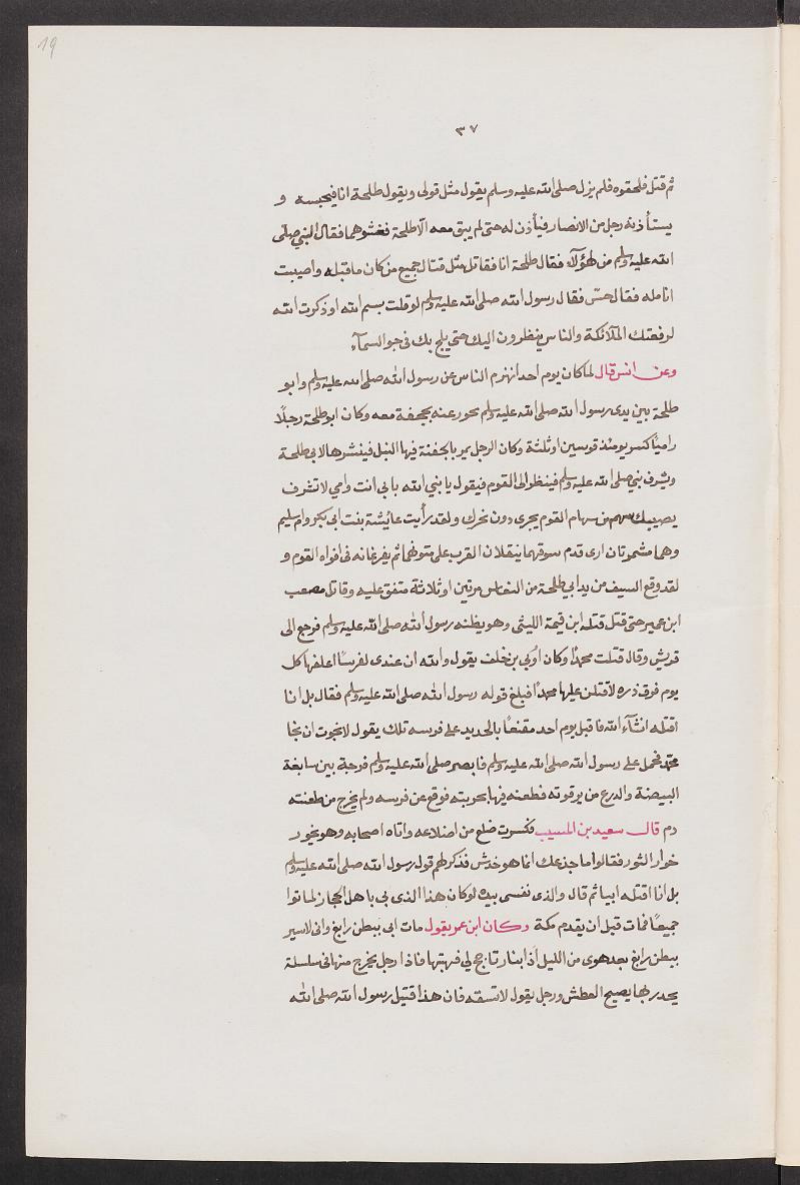 19
٣٧
ثم قتل فلحقوه فلم يزل صلى الله عليه وسلم يقول مثل قولى ويقول طلحة انا فيحبسه و
يستأذنه رجل من الانصار فيأذن له حتى لم يبق معه الا طلحة فغشوهما فقال النبي صلى
الله عليه وسلم من لهؤلآء فقال طلحة انا فقاتل مثل قتال جميع من كان ماقبله واصيبت
انامله فقال حسّ فقال رسول الله صلى الله عليه وسلم لو قلت بسم الله او ذكرت الله
لرفعتك الملآئكة والناس ينظرون اليك حتى يلج بك فى جو السمآء
وعن انس قال لما كان يوم احد انهزم الناس عن رسول الله صلى الله عليه وسلم وابو
طلحة بين يدى رسول الله صلى الله عليه وسلم محور عنه بجحفة معه وكان ابو طلحة رجلًا
راميًا كسر يومئذ قوسين او ثلثة وكان الرجل يمر بالجفنة فيها النبل فينشرها لابى طلحة
ويشرف نبي صلى الله عليه وسلم فينظر الى القوم فيقول يا نبي الله بابى انت وامي لا تشرف
يصيبك سهم من سهام القوم يجرى دون نحرك ولقد رأيت عائيشة بنت ابى بكر وام سليم
وهما مشمرتان ارى قدم سوقهما ينقلان القرب على متونهما ثم يفرغانه فى افواه القوم و
لقد وقع السيف من يد ابي طلحة من النعاس مرتين او ثلاثة متفق عليه وقاتل مصعب
ابن عمير حتى قتل قتله ابن قيمة الليثى وهو يظنه رسول الله صلى الله عليه وسلم فرجع الى
قريش وقال قتلت محمدًا وكان اُبي بن خلف يقول والله ان عندى لفرسًا اعلفها كل
يوم فرق ذره لاقتلن عليها محمدًا فبلغ قوله رسول الله صلى الله عليه وسلم فقال بل انا
اقتله انشآء الله فاقبل يوم احد مقنعًا بالحديد على فرسه تلك يقول لانجوت ان نجا
محمّد فحمل على رسول الله صلى الله عليه وسلم فابصر صلى الله عليه وسلم فرجة بين سابغة
البيضة والدرع من يرقوته فطعنه فيها بحربته فوقع عن فرسه ولم يخرج من طعنته
دم قال سعيد بن المسيب فكسرت ضلع من اضلاعه واتاه اصحابه وهو يخور
خوار الثور فقالوا ما جذعك انما هو خدش فذكر لهم قول رسول الله صلى الله عليه وسلم
بل انا اقتله ابيا ثم قال والذى نفسى بيده لو كان هذا الذى بى باهل الحجاز لماتوا
جميعًا فمات قبل ان يقدم مكة وكان ابن عمر يقول مات ابى ببطن رابغ وانى لاسير
ببطن رابغ بعد هوى من الليل اذا بنار تاجج لي فهبتها فاذا رجل يخرج منها فى سلسلة
يجد بها يصيح العطش ورجل يقول لا تسقه فان هذا قتيل رسول الله صلى الله